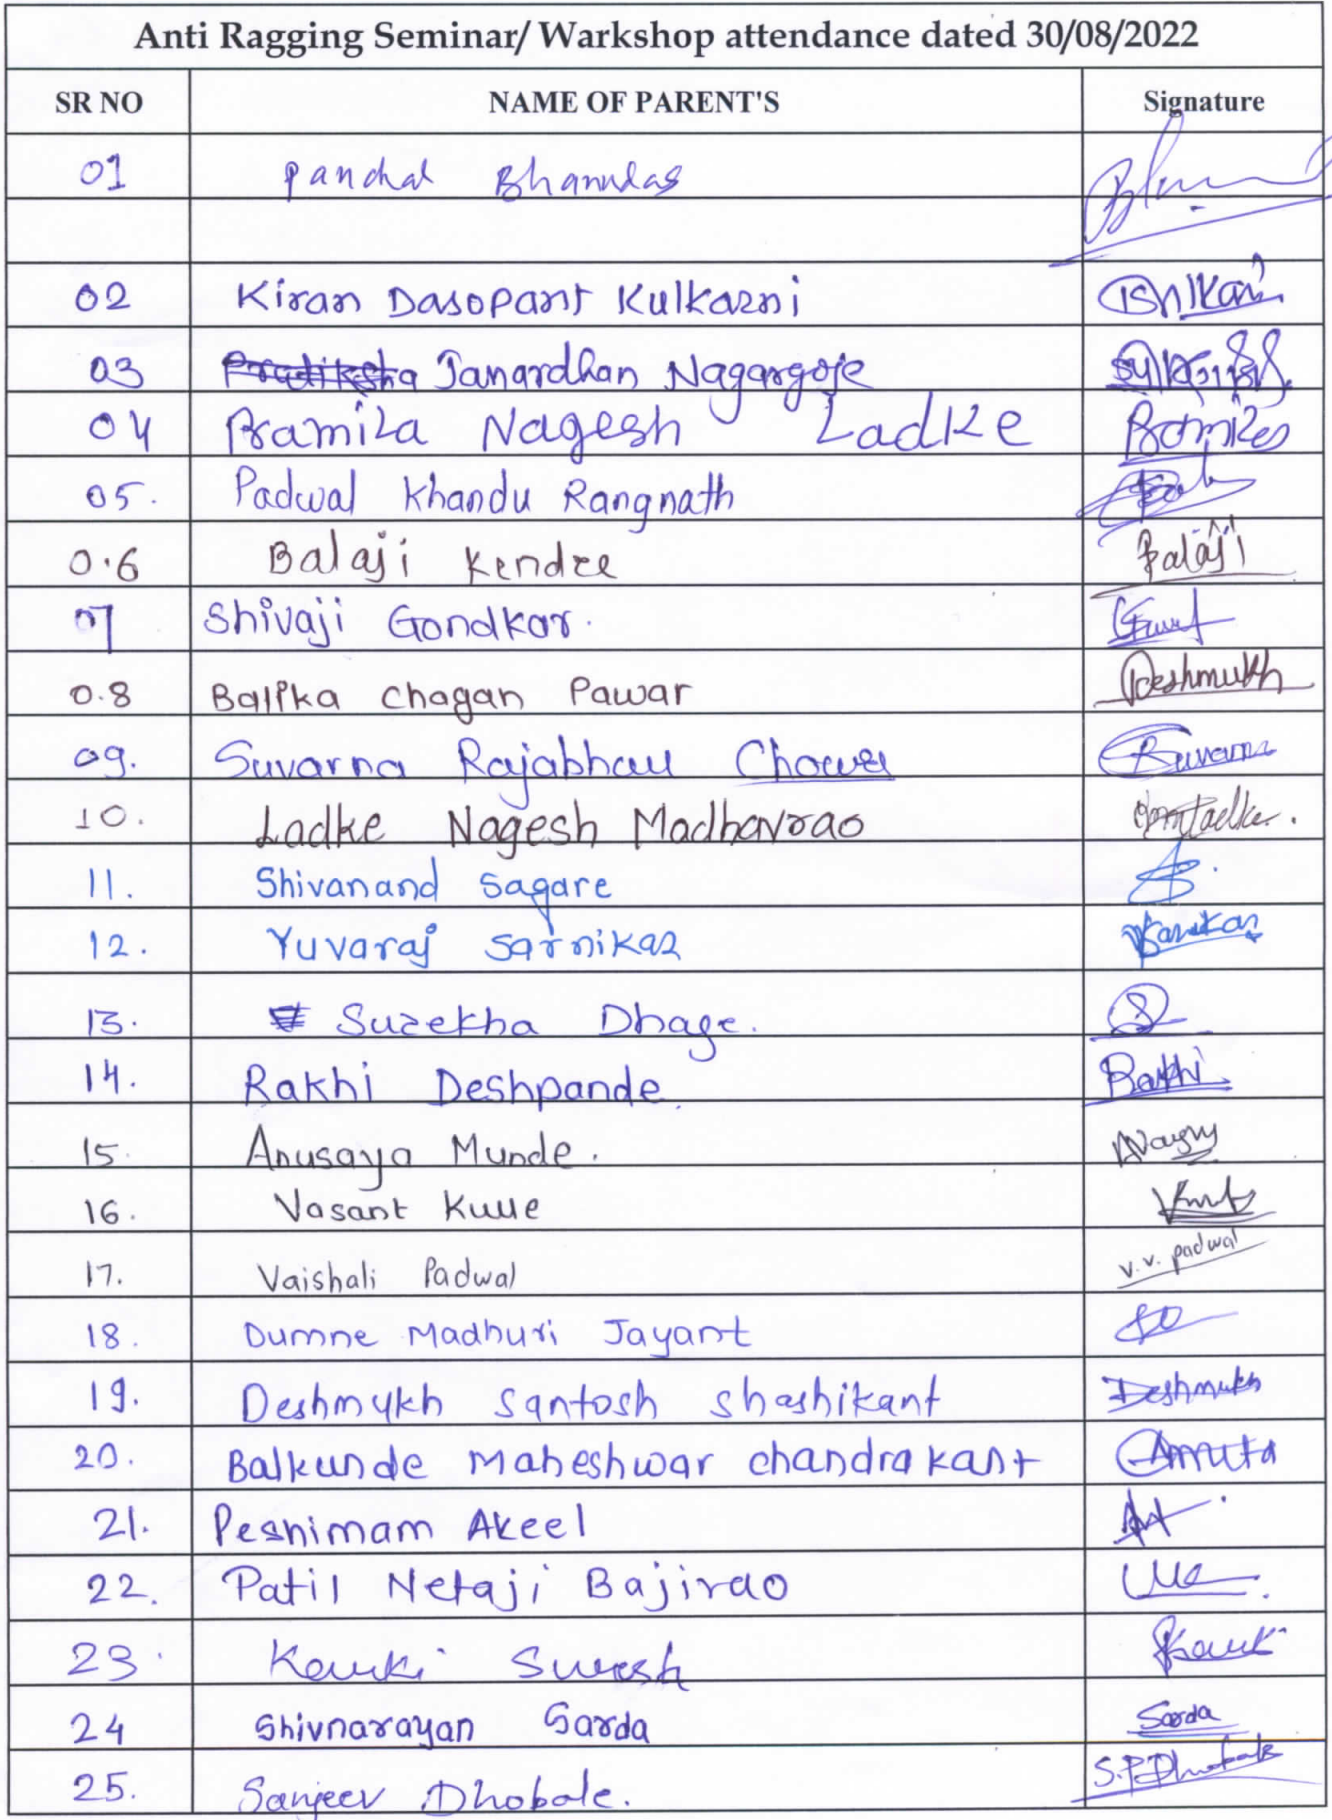 Anti Ragging Seminar/ Warkshop attendance dated 30/08/2022
SR NO NAME OF PARENT'S Signature
01 Panchal Bhanudas
02 Kiran Dasopant Kulkarni
03 Janardhan Nagargoje
04 Pramila Nagesh Ladke
05. Padwal Khandu Rangnath
0.6 Balaji Kendre Balaji
07 Shivaji Gondkar.
0.8 Balika Chagan Pawar Deshmukh
09. Suvarna Rajabhau Suvarna
10. Ladke Nagesh Madhavrao
11. Shivanand Sagare
12. Yuvaraj Sarnikar
13. Surekha Dhage.
14. Rakhi Deshpande Rakhi
15. Anusaya Munde.
16. Vasant
17. Vaishali Padwal v.v. padwal
18. Dumne Madhuri Jayant
19. Deshmukh Santosh Shashikant Deshmukh
20. Balkunde Maheshwar chandrakant Amruta
21. Peshimam Akeel
22. Patil Netaji Bajirao
23. Suresh
24 Shivnarayan Sarda Sarda
25. Sanjeev Dhobale. S.P. Dhobale